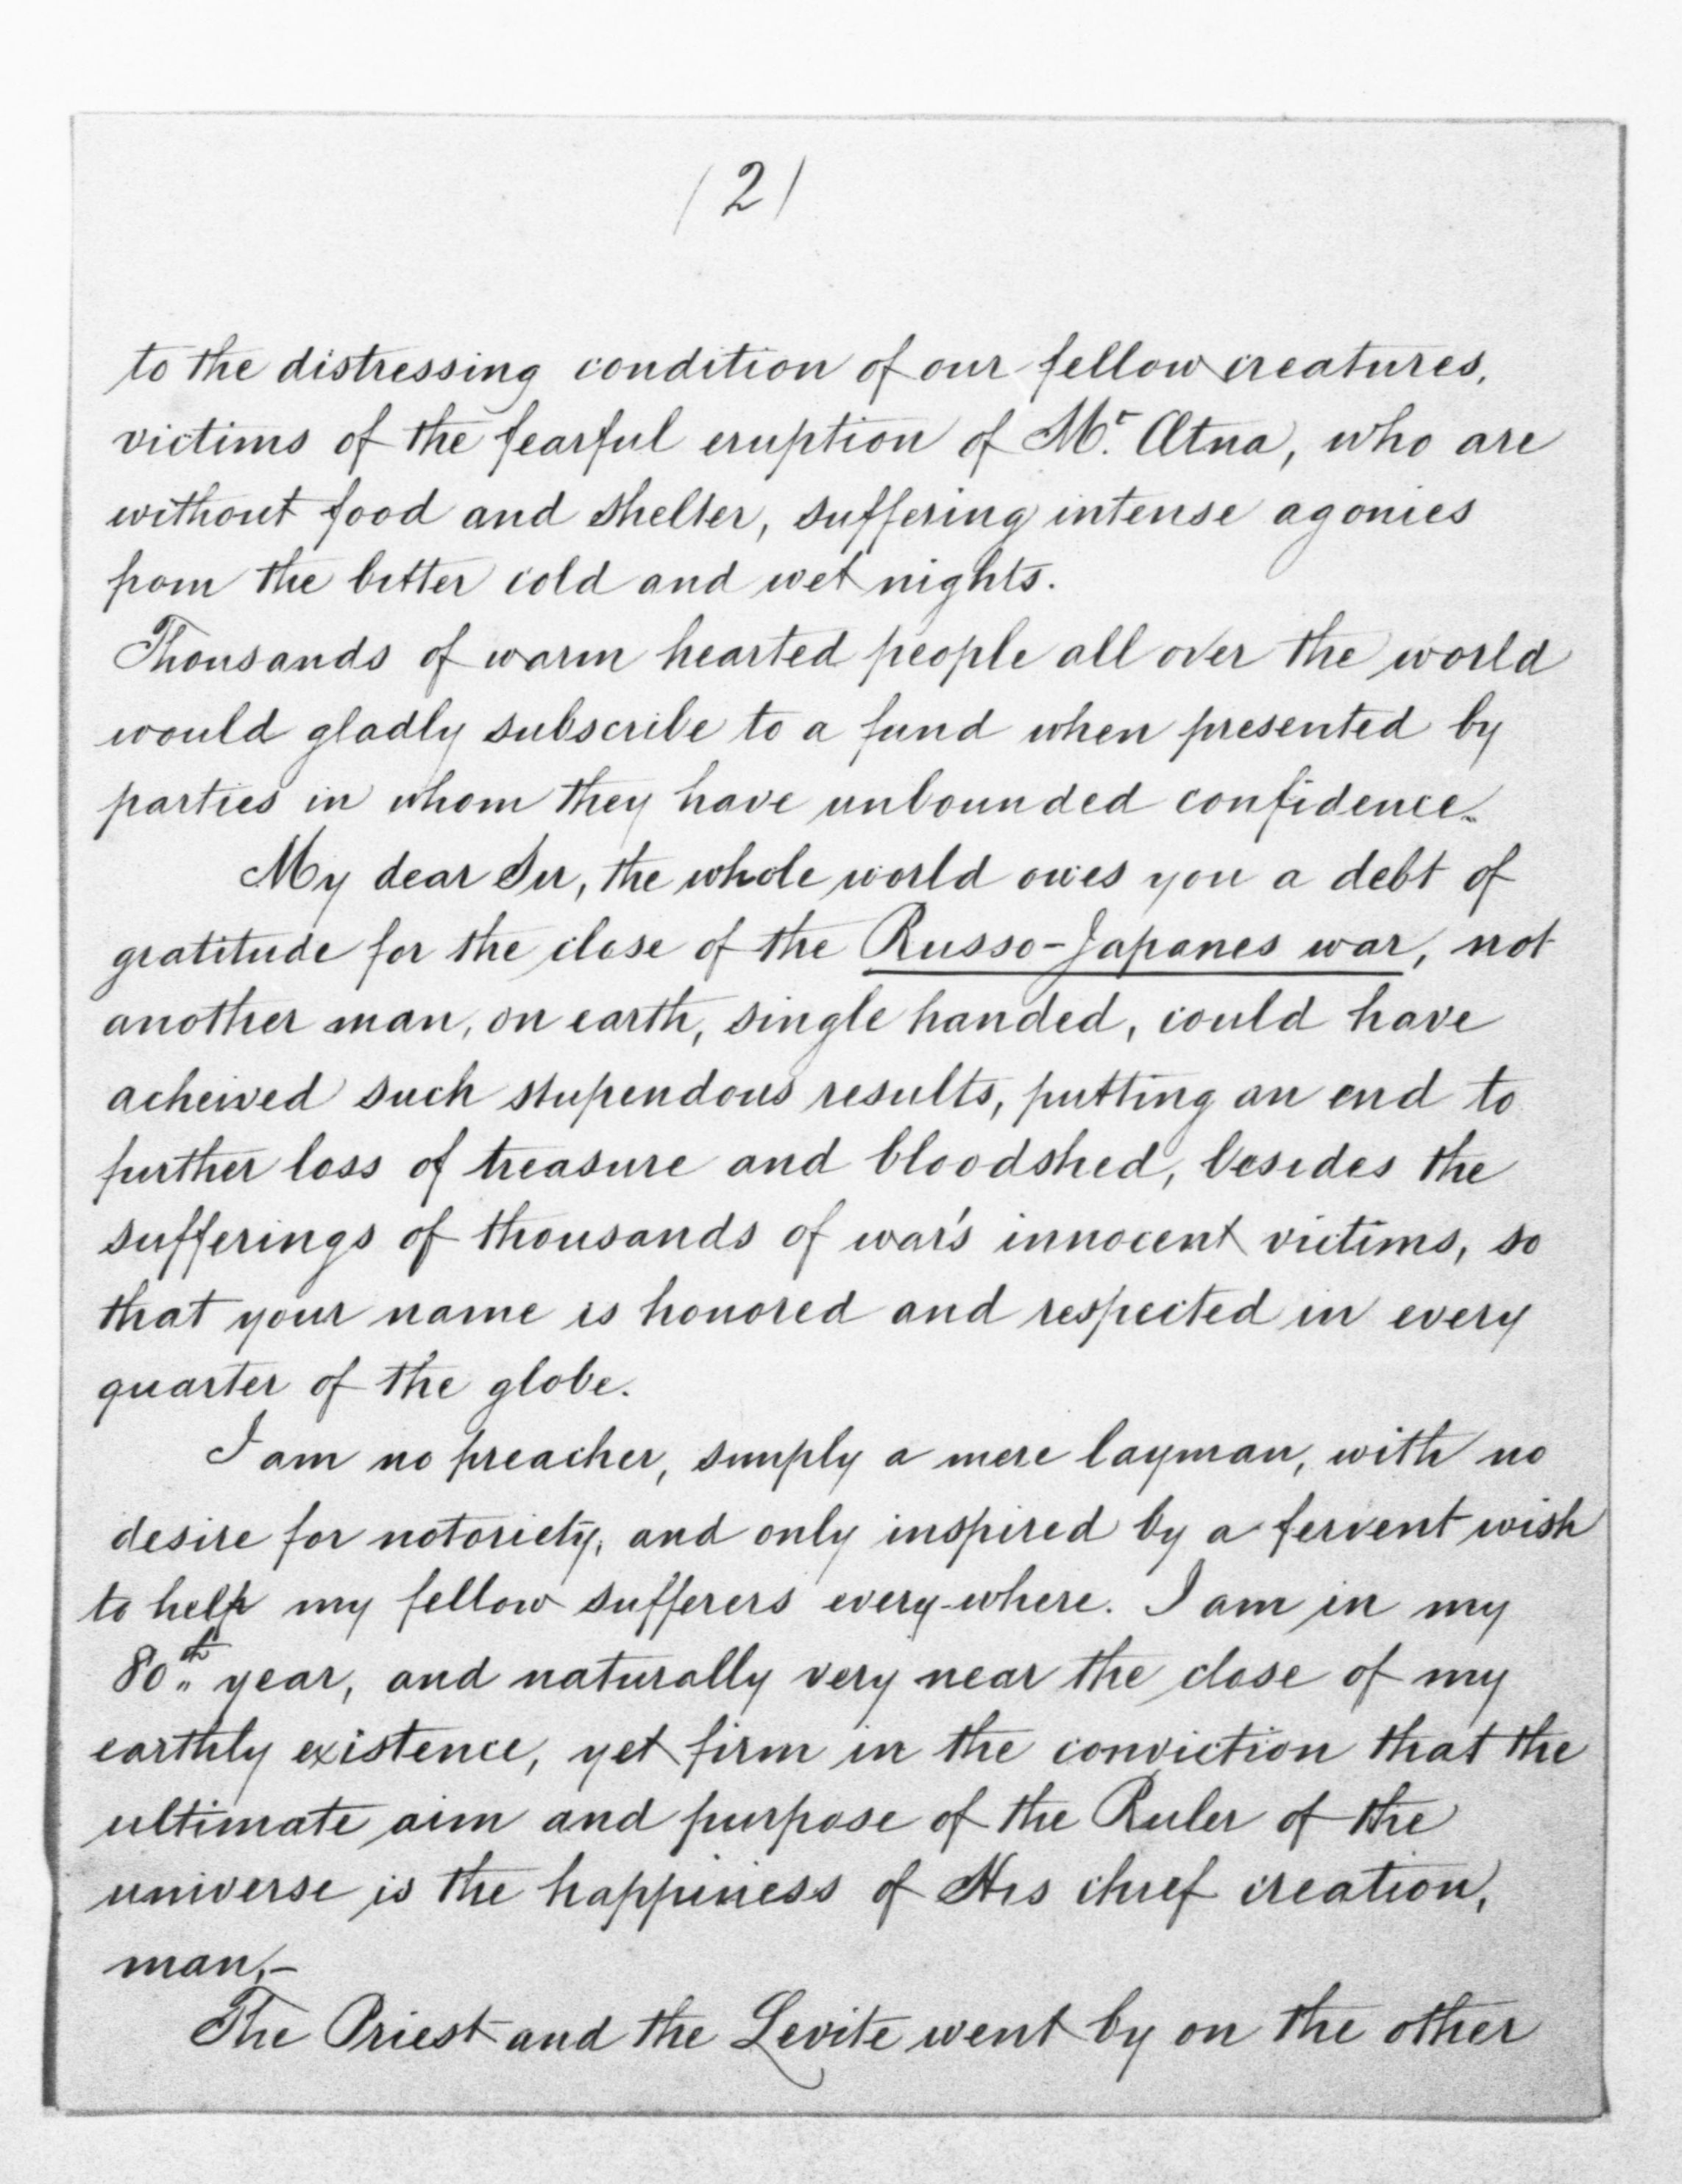 /2/
to the distressing condition of our fellow creatures,
victims of the fearful eruption of Mr. Ætna, who are
without food and shelter, suffering intense agonies
from the bitter cold and wet nights.
Thousands of warm hearted people all over the world
would gladly subscribe to a fund when presented by
parties in whom they have unbounded confidence.
My dear Sir, the whole world owes you a debt of
gratitude for the close of the Russo-Japanes war, not
another man, on earth, single handed, could have
acheived such stupendous results, putting an end to
further loss of treasure and bloodshed, besides the
sufferings of thousands of war's innocent victims, so
that your name is honored and respected in every
quarter of the globe.
I am no preacher, simply a mere layman, with no
desire for notoriety, and only inspired by a fervent wish
to help my fellow sufferers every-where. I am in my
80th year, and naturally very near the close of my
earthly existence, yet firm in the conviction that the
ultimate aim and purpose of the Ruler of the
universe is the happiness of His chief creation,
man,-
The Priest and the Levite went by on the other